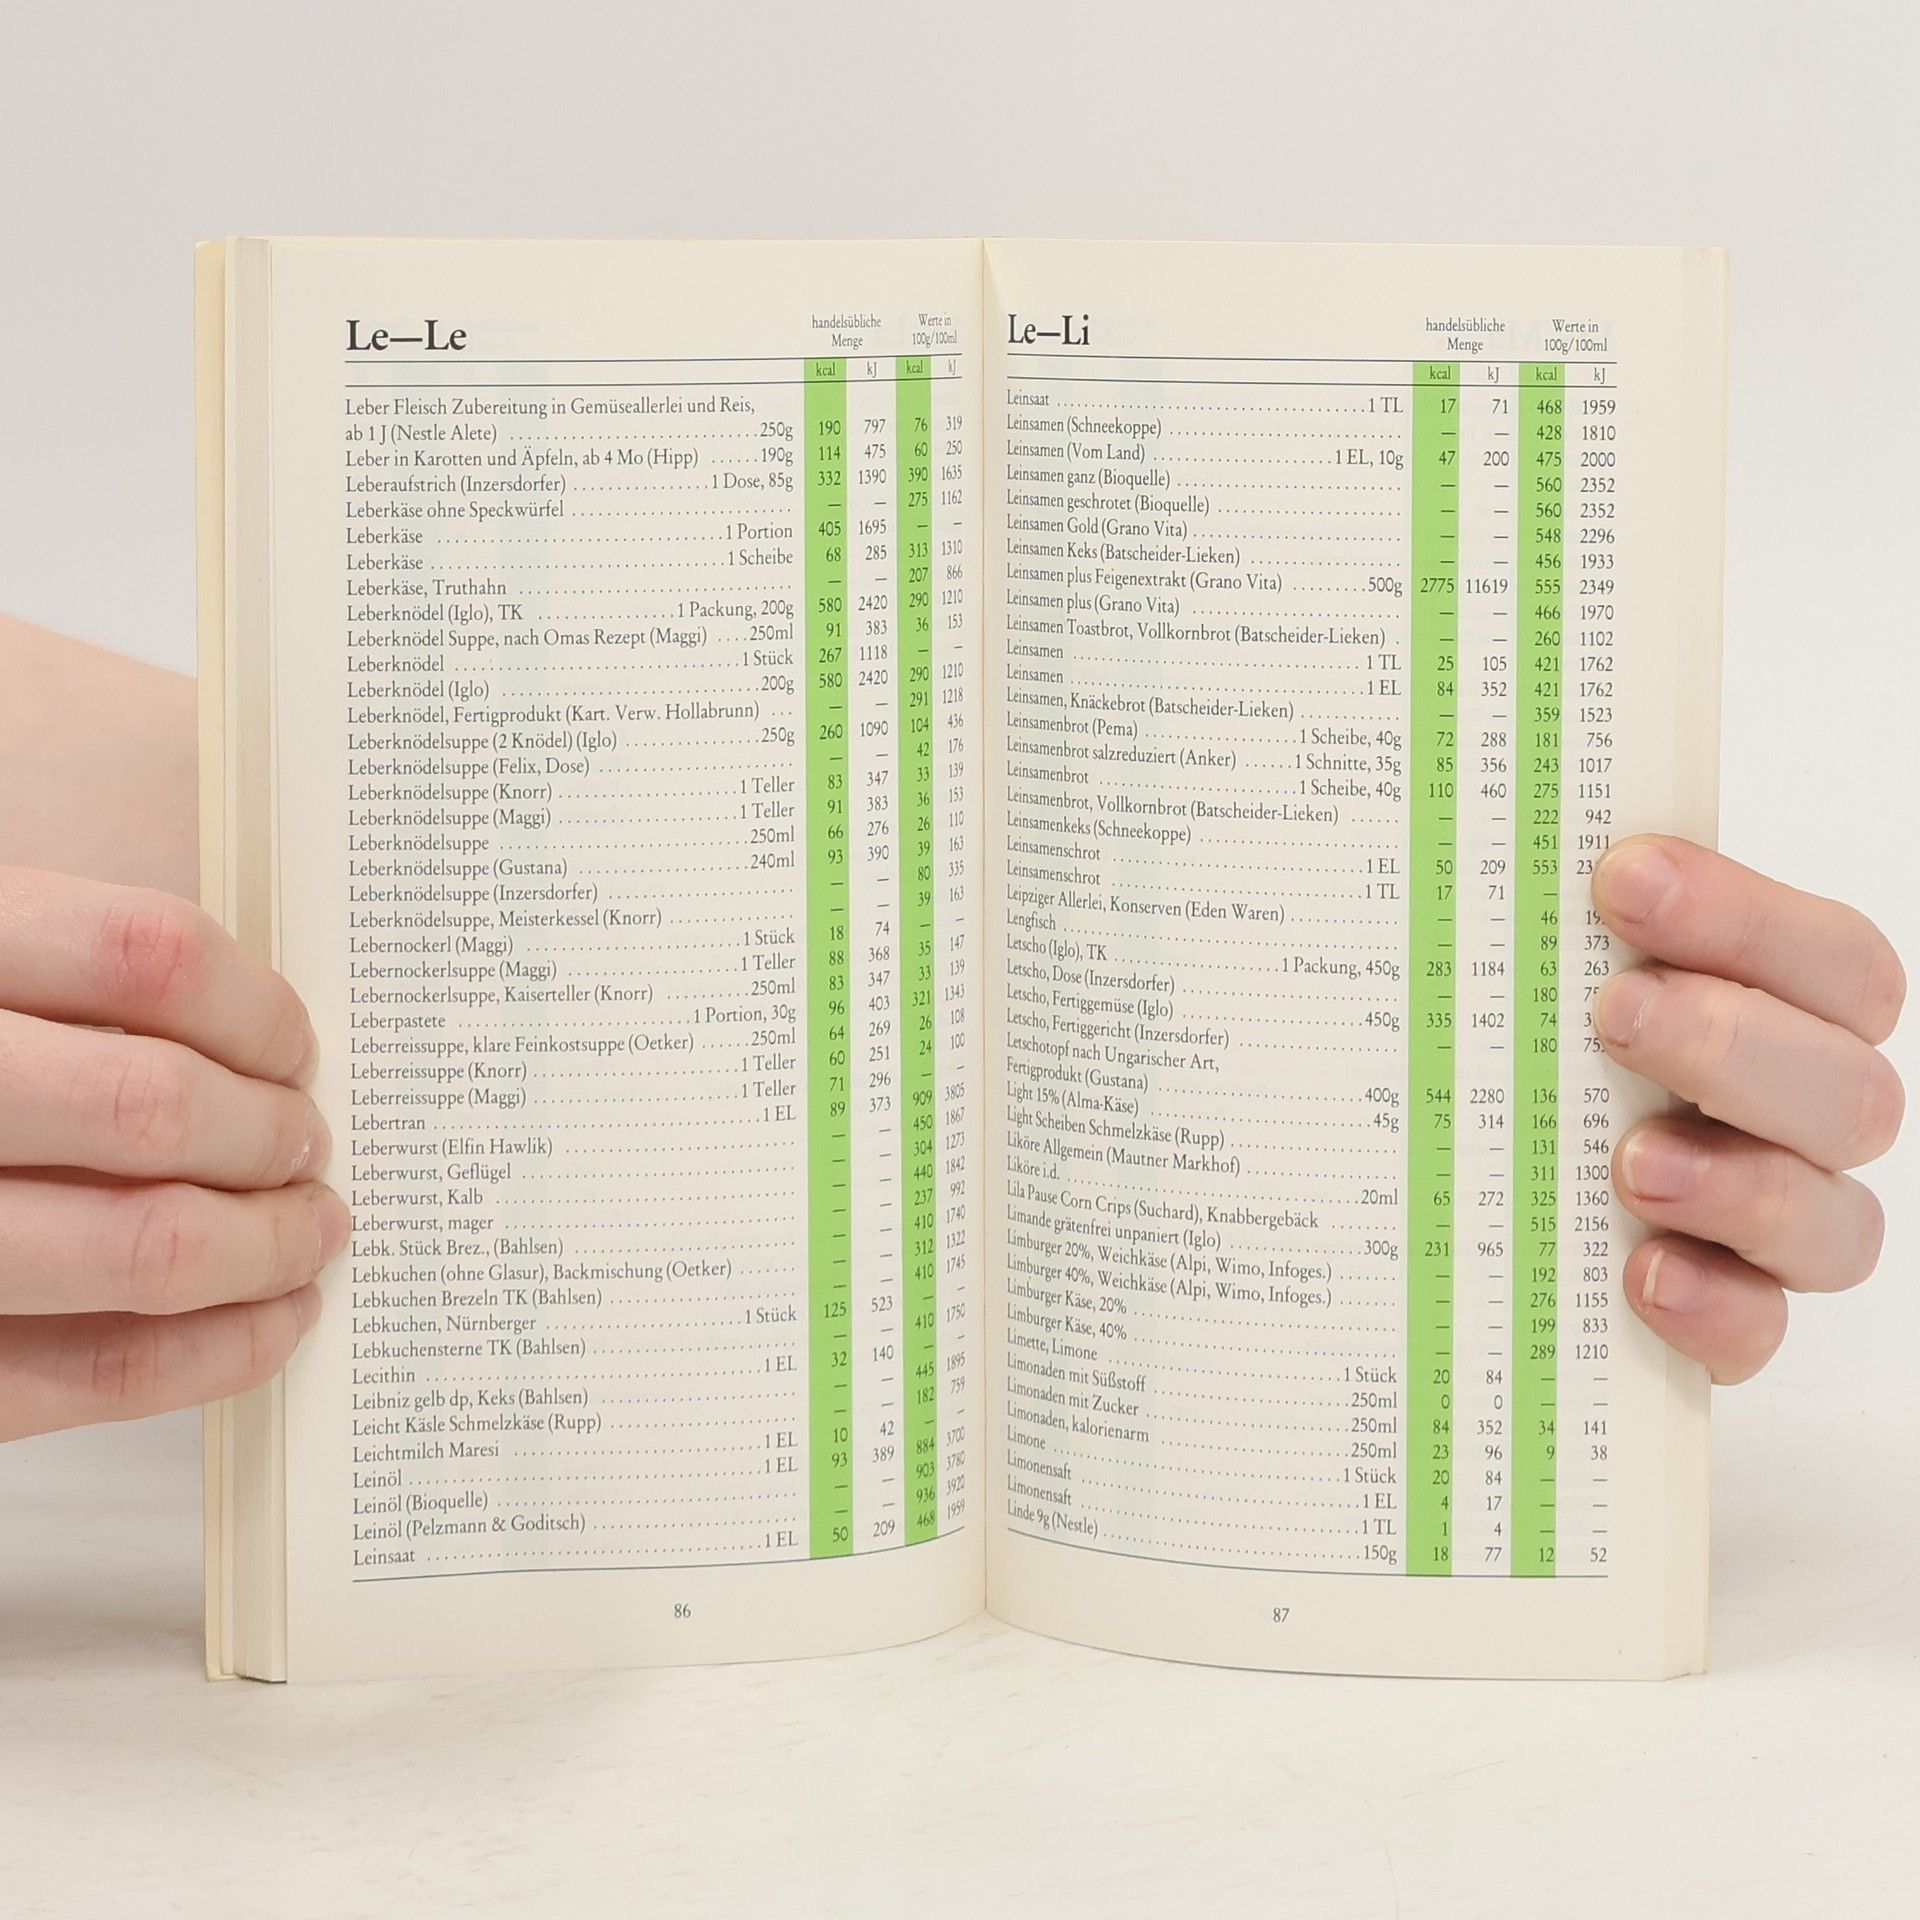 Le—Le
handelsübliche Menge Werte in 100g/100ml
kcal kJ kcal kJ
Leber Fleisch Zubereitung in Gemüseallerlei und Reis,
ab 1 J (Nestle Alete) ..... 250g 190 797 76 319
Leber in Karotten und Äpfeln, ab 4 Mo (Hipp) ..... 190g 114 475 60 250
Leberaufstrich (Inzersdorfer) ..... 1 Dose, 85g 332 1390 390 1635
Leberkäse ohne Speckwürfel ..... — — 275 1162
Leberkäse ..... 1 Portion 405 1695 — —
Leberkäse ..... 1 Scheibe 68 285 313 1310
Leberkäse, Truthahn ..... — — 207 866
Leberknödel (Iglo), TK ..... 1 Packung, 200g 580 2420 290 1210
Leberknödel Suppe, nach Omas Rezept (Maggi) ..... 250ml 91 383 36 153
Leberknödel ..... 1 Stück 267 1118 — —
Leberknödel (Iglo) ..... 200g 580 2420 290 1210
Leberknödel, Fertigprodukt (Kart. Verw. Hollabrunn) ... — — 291 1218
Leberknödelsuppe (2 Knödel) (Iglo) ..... 250g 260 1090 104 436
Leberknödelsuppe (Felix, Dose) ..... — — 42 176
Leberknödelsuppe (Knorr) ..... 1 Teller 83 347 33 139
Leberknödelsuppe (Maggi) ..... 1 Teller 91 383 36 153
Leberknödelsuppe ..... 250ml 66 276 26 110
Leberknödelsuppe (Gustana) ..... 240ml 93 390 39 163
Leberknödelsuppe (Inzersdorfer) ..... — — 80 335
Leberknödelsuppe, Meisterkessel (Knorr) ..... — — 39 163
Lebernockerl (Maggi) ..... 1 Stück 18 74 — —
Lebernockerlsuppe (Maggi) ..... 1 Teller 88 368 35 147
Lebernockerlsuppe, Kaiserteller (Knorr) ..... 250ml 83 347 33 139
Leberpastete ..... 1 Portion, 30g 96 403 321 1343
Leberreissuppe, klare Feinkostsuppe (Oetker) ..... 250ml 64 269 26 108
Leberreissuppe (Knorr) ..... 1 Teller 60 251 24 100
Leberreissuppe (Maggi) ..... 1 Teller 71 296 — —
Lebertran ..... 1 EL 89 373 909 3805
Leberwurst (Elfin Hawlik) ..... — — 450 1867
Leberwurst, Geflügel ..... — — 304 1273
Leberwurst, Kalb ..... — — 440 1842
Leberwurst, mager ..... — — 237 992
Lebk. Stück Brez., (Bahlsen) ..... — — 410 1740
Lebkuchen (ohne Glasur), Backmischung (Oetker) ..... — — 312 1322
Lebkuchen Brezeln TK (Bahlsen) ..... — — 410 1745
Lebkuchen, Nürnberger ..... 1 Stück 125 523 — —
Lebkuchensterne TK (Bahlsen) ..... — — 410 1750
Lecithin ..... 1 EL 32 140 — —
Leibniz gelb dp, Keks (Bahlsen) ..... — — 445 1895
Leicht Käsle Schmelzkäse (Rupp) ..... — — 182 759
Leichtmilch Maresi ..... 1 EL 10 42 — —
Leinöl ..... 1 EL 93 389 884 3700
Leinöl (Bioquelle) ..... — — 903 3780
Leinöl (Pelzmann & Goditsch) ..... — — 936 3920
Leinsaat ..... 1 EL 50 209 468 1959
86
Le—Li
handelsübliche Menge Werte in 100g/100ml
kcal kJ kcal kJ
Leinsaat ..... 1 TL 17 71 468 1959
Leinsamen (Schneekoppe) ..... — — 428 1810
Leinsamen (Vom Land) ..... 1 EL, 10g 47 200 475 2000
Leinsamen ganz (Bioquelle) ..... — — 560 2352
Leinsamen geschrotet (Bioquelle) ..... — — 560 2352
Leinsamen Gold (Grano Vita) ..... — — 548 2296
Leinsamen Keks (Batscheider-Lieken) ..... — — 456 1933
Leinsamen plus Feigenextrakt (Grano Vita) ..... 500g 2775 11619 555 2349
Leinsamen plus (Grano Vita) ..... — — 466 1970
Leinsamen Toastbrot, Vollkornbrot (Batscheider-Lieken) . — — 260 1102
Leinsamen ..... 1 TL 25 105 421 1762
Leinsamen ..... 1 EL 84 352 421 1762
Leinsamen, Knäckebrot (Batscheider-Lieken) ..... — — 359 1523
Leinsamenbrot (Pema) ..... 1 Scheibe, 40g 72 288 181 756
Leinsamenbrot salzreduziert (Anker) ..... 1 Schnitte, 35g 85 356 243 1017
Leinsamenbrot ..... 1 Scheibe, 40g 110 460 275 1151
Leinsamenbrot, Vollkornbrot (Batscheider-Lieken) ..... — — 222 942
Leinsamenkeks (Schneekoppe) ..... — — 451 1911
Leinsamenschrot ..... 1 EL 50 209 553
Leinsamenschrot ..... 1 TL 17 71 —
Leipziger Allerlei, Konserven (Eden Waren) ..... — — 46
Lengfisch ..... — — 89 373
Letscho (Iglo), TK ..... 1 Packung, 450g 283 1184 63 263
Letscho, Dose (Inzersdorfer) ..... — — 180
Letscho, Fertiggemüse (Iglo) ..... 450g 335 1402 74
Letscho, Fertiggericht (Inzersdorfer) ..... — — 180
Letschotopf nach Ungarischer Art,
Fertigprodukt (Gustana) ..... 400g 544 2280 136 570
Light 15% (Alma-Käse) ..... 45g 75 314 166 696
Light Scheiben Schmelzkäse (Rupp) ..... — — 131 546
Liköre Allgemein (Mautner Markhof) ..... — — 311 1300
Liköre i.d. ..... 20ml 65 272 325 1360
Lila Pause Corn Crips (Suchard), Knabbergebäck ..... — — 515 2156
Limande grätenfrei unpaniert (Iglo) ..... 300g 231 965 77 322
Limburger 20%, Weichkäse (Alpi, Wimo, Infoges.) ..... — — 192 803
Limburger 40%, Weichkäse (Alpi, Wimo, Infoges.) ..... — — 276 1155
Limburger Käse, 20% ..... — — 199 833
Limburger Käse, 40% ..... — — 289 1210
Limette, Limone ..... 1 Stück 20 84 — —
Limonaden mit Süßstoff ..... 250ml 0 0 — —
Limonaden mit Zucker ..... 250ml 84 352 34 141
Limonaden, kalorienarm ..... 250ml 23 96 9 38
Limone ..... 1 Stück 20 84 — —
Limonensaft ..... 1 EL 4 17 — —
Limonensaft ..... 1 TL 1 4 — —
Linde 9g (Nestle) ..... 150g 18 77 12 52
87